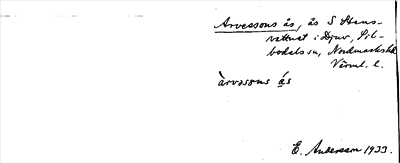 Arvessons ås, ås S Stens-
vattnet i Djuv, Sil-
bodals sn, Nordmarks hd
Värml. l.
àrvsons ås
E. Andersson 1933.